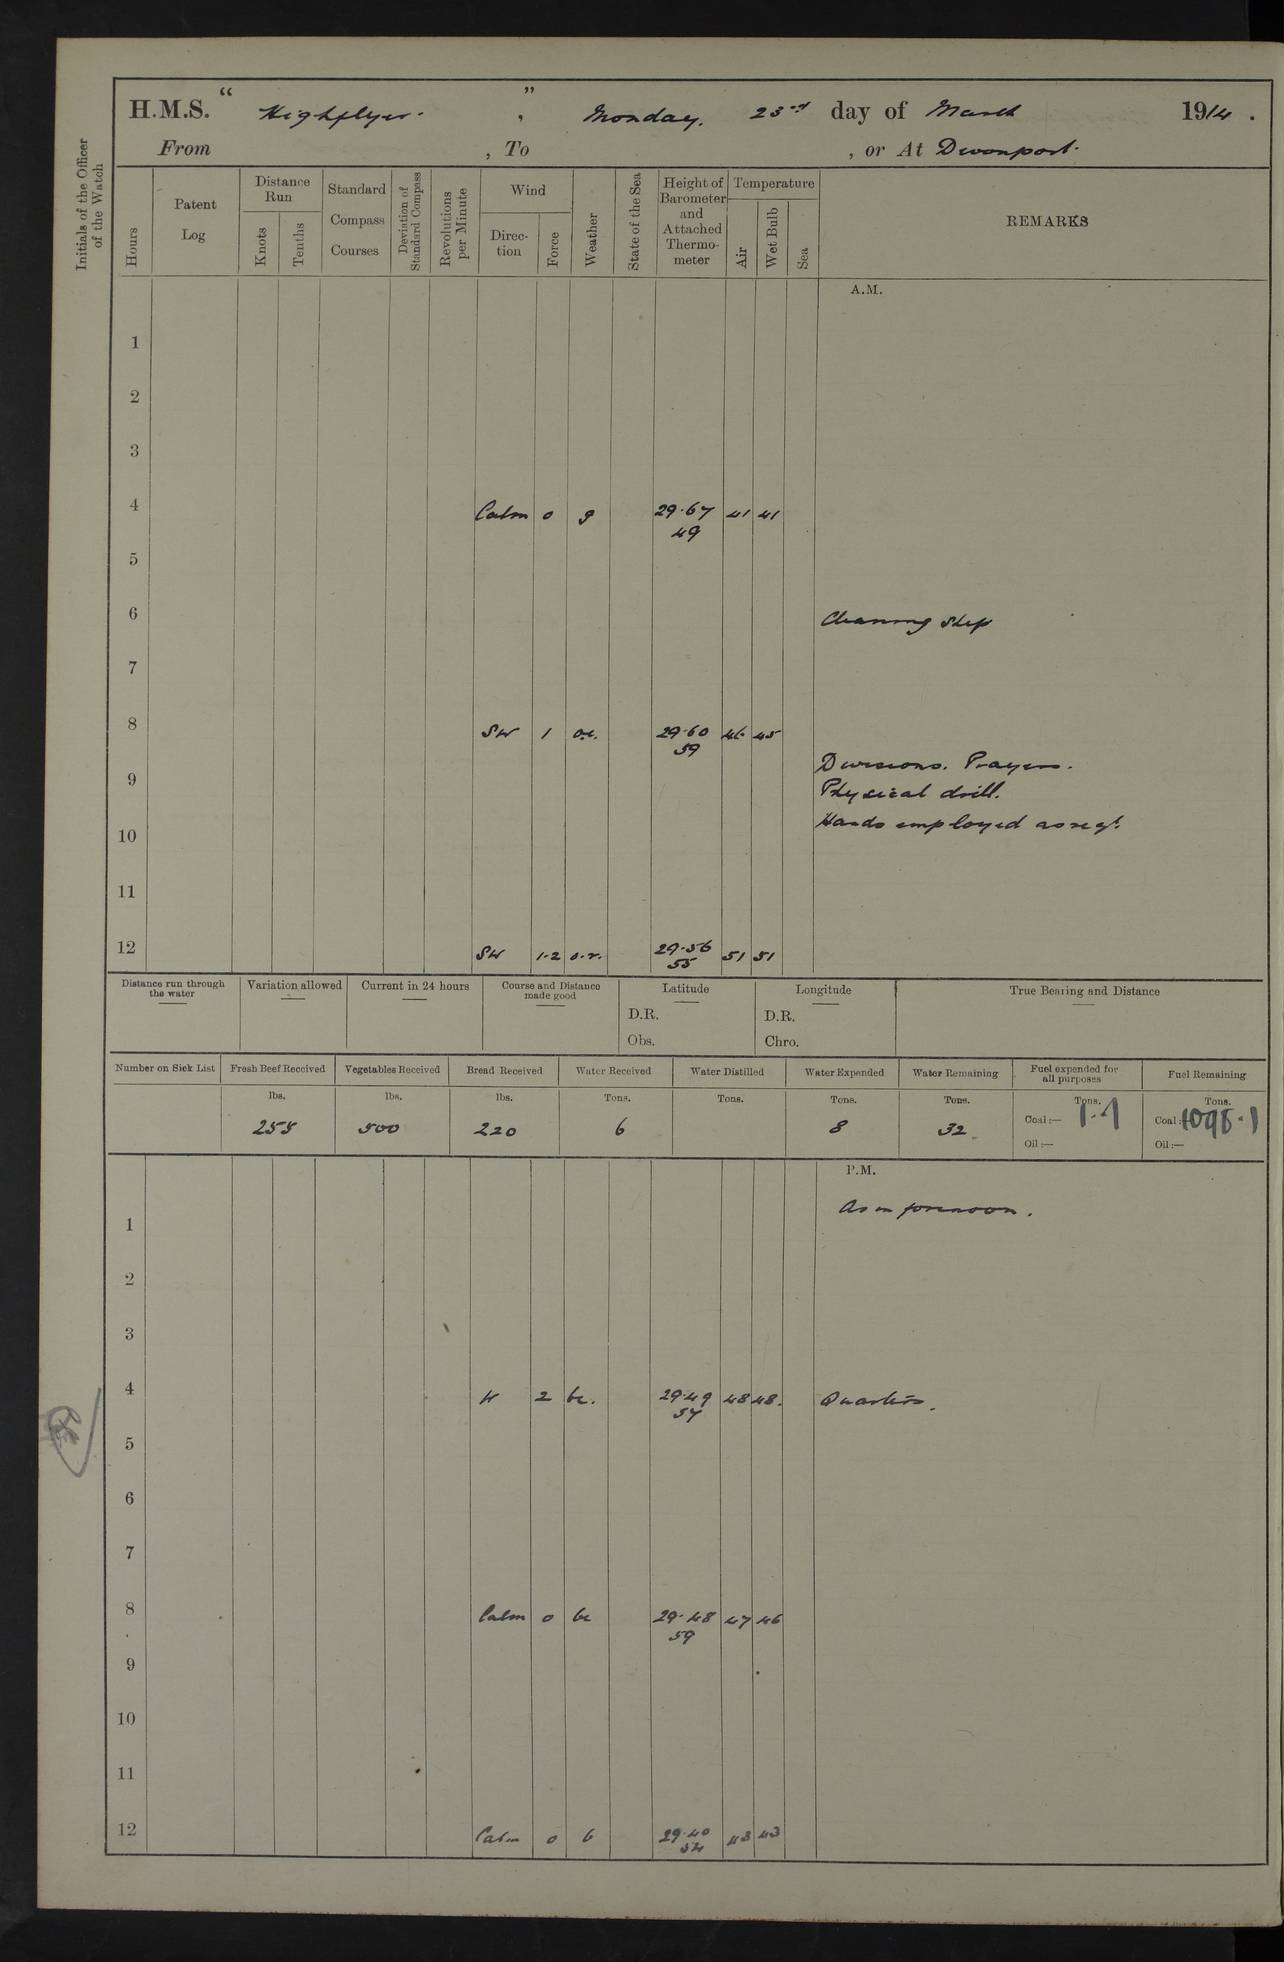 H.M.S. “ Highflyer. ” , Monday. 23rd day of March 1914.
From , To , or At Devonport.
Initials of the Officer of the Watch
Hours
Patent Log
Distance Run
Knots
Tenths
Standard Compass Courses
Deviation of Standard Compass
Revolutions per Minute
Wind
Direction
Force
Weather
State of the Sea
Height of Barometer and Attached Thermometer
Temperature
Air
Wet Bulb
Sea
REMARKS
A.M.
1
2
3
4 Calm 0 g 29.67 41 41
49
5
6 Cleaning Ship
7
8 SW 1 o.c. 29.60 46 45
59
Divisions. Prayers.
9 Physical drill.
10 Hands employed as req.
11
12 SW 1.2 o.r. 29.56 51 51
55
Distance run through the water
Variation allowed
Current in 24 hours
Course and Distance made good
Latitude
D.R.
Obs.
Longitude
D.R.
Chro.
True Bearing and Distance
Number on Sick List Fresh Beef Received Vegetables Received Bread Received Water Received Water Distilled Water Expended Water Remaining Fuel expended for all purposes Fuel Remaining
lbs. lbs. lbs. Tons. Tons. Tons. Tons. Tons. Tons.
255 500 220 6 8 32 Coal:— 1.1 Coal:— 1098.1
Oil:— Oil:—
P.M.
As in forenoon.
1
2
3
4 W 2 bc. 29.49 48 48. Quarters.
57
5
6
7
8 Calm 0 bc 29.48 47 46
59
9
10
11
12 Calm 0 b 29.40 43 43
54